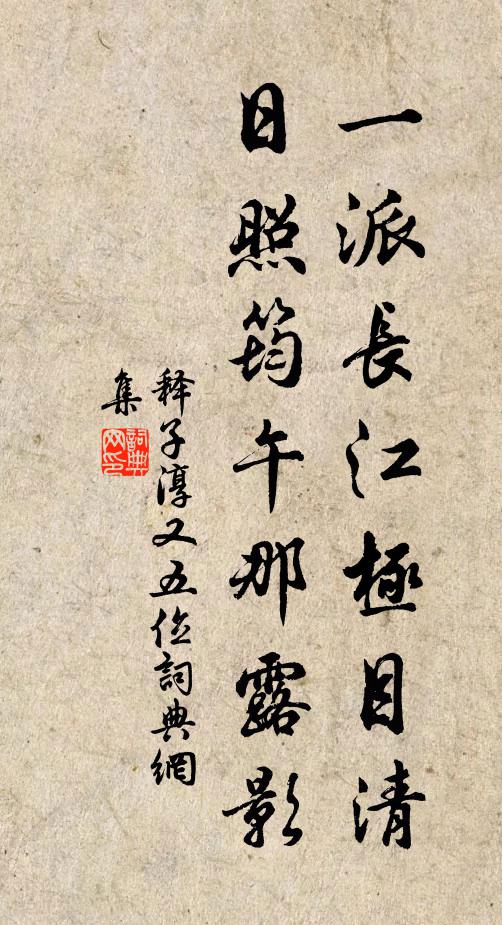 一派長江極目清
日照筠午那露影
释子淳又五位詞典網
集
詞典
网印